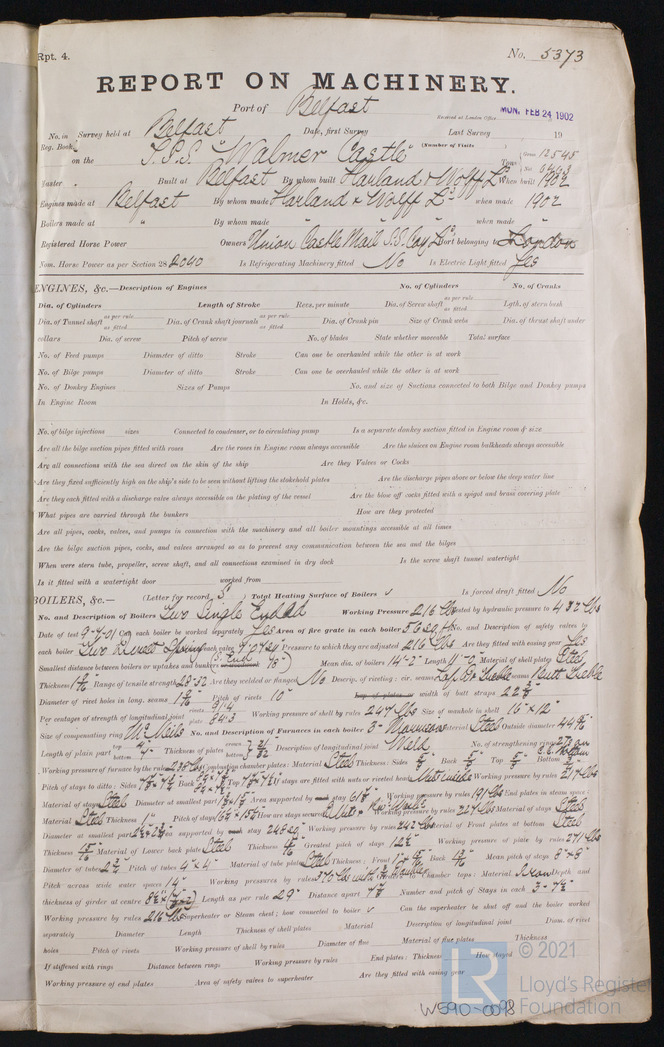 Rpt. 4.
No. 5373
REPORT ON MACHINERY.
Port of Belfast
Received at London Office MON. FEB 24 1902
No. in Survey held at Belfast Date, first Survey Last Survey 19
Reg. Book. (Number of Visits
on the S.S. "Walmer Castle" Tons Gross 12545
Net 6463
Master Built at Belfast By whom built Harland & Wolff Ld When built 1902
Engines made at Belfast By whom made Harland & Wolff Ld when made 1902
Boilers made at " By whom made " when made "
Registered Horse Power Owners Union Castle Mail S.S. Coy Ld Port belonging to London
Nom. Horse Power as per Section 28 2040 Is Refrigerating Machinery fitted No Is Electric Light fitted Yes
ENGINES, &c.—Description of Engines No. of Cylinders No. of Cranks
Dia. of Cylinders Length of Stroke Revs. per minute Dia. of Screw shaft as per rule as fitted Lgth. of stern bush
Dia. of Tunnel shaft as per rule as fitted Dia. of Crank shaft journals as per rule as fitted Dia. of Crank pin Size of Crank webs Dia. of thrust shaft under
collars Dia. of screw Pitch of screw No. of blades State whether moveable Total surface
No. of Feed pumps Diameter of ditto Stroke Can one be overhauled while the other is at work
No. of Bilge pumps Diameter of ditto Stroke Can one be overhauled while the other is at work
No. of Donkey Engines Sizes of Pumps No. and size of Suctions connected to both Bilge and Donkey pumps
In Engine Room In Holds, &c.
No. of bilge injections sizes Connected to condenser, or to circulating pump Is a separate donkey suction fitted in Engine room & size
Are all the bilge suction pipes fitted with roses Are the roses in Engine room always accessible Are the sluices on Engine room bulkheads always accessible
Are all connections with the sea direct on the skin of the ship Are they Valves or Cocks
Are they fixed sufficiently high on the ship's side to be seen without lifting the stokehold plates Are the discharge pipes above or below the deep water line
Are they each fitted with a discharge valve always accessible on the plating of the vessel Are the blow off cocks fitted with a spigot and brass covering plate
What pipes are carried through the bunkers How are they protected
Are all pipes, cocks, valves, and pumps in connection with the machinery and all boiler mountings accessible at all times
Are the bilge suction pipes, cocks, and valves arranged so as to prevent any communication between the sea and the bilges
When were stern tube, propeller, screw shaft, and all connections examined in dry dock Is the screw shaft tunnel watertight
Is it fitted with a watertight door worked from
BOILERS, &c.— (Letter for record S) Total Heating Surface of Boilers Is forced draft fitted No
No. and Description of Boilers Two Single Ended Working Pressure 216 lbs Tested by hydraulic pressure to 432 lbs
Date of test 9-7-01 Can each boiler be worked separately Yes Area of fire grate in each boiler 56 sq ft No. and Description of safety valves to
each boiler Two Direct Spring each valve Pressure to which they are adjusted 216 lbs Are they fitted with easing gear Yes
Smallest distance between boilers or uptakes and bunkers Mean dia. of boilers 14'-2" Length 11'-0" Material of shell plates Steel
Thickness Range of tensile strength 28-32 Are they welded or flanged No Descrip. of riveting: cir. seams Lap Dbl & Treble seams Butt Treble
Diameter of rivet holes in long. seams Pitch of rivets 10" width of butt straps
Per centages of strength of longitudinal joint rivets 91.4 plate 84.3 Working pressure of shell by rules 247 lbs Size of manhole in shell 16" x 12"
Size of compensating ring McNeils No. and Description of Furnaces in each boiler 3- Morrison Material Steel Outside diameter
Length of plain part top bottom Thickness of plates crown bottom Description of longitudinal joint Weld No. of strengthening rings
Working pressure of furnace by the rules Combustion chamber plates: Material Steel Thickness: Sides Back Top Bottom
Pitch of stays to ditto: Sides Back Top If stays are fitted with nuts or riveted heads Nuts inside Working pressure by rules 217 lbs
Material of stays Steel Diameter at smallest part Area supported by each stay Working pressure by rules 191 lbs End plates in steam space:
Material Steel Thickness 1" Pitch of stays How are stays secured Working pressure by rules 227 lbs Material of stays Steel
Diameter at smallest part Area supported by each stay Working pressure by rules 242 lbs Material of Front plates at bottom Steel
Thickness Material of Lower back plate Steel Thickness Greatest pitch of stays Working pressure of plate by rules 271 lbs
Diameter of tubes Pitch of tubes 4" x 4" Material of tube plates Steel Thickness: Front Back Mean pitch of stays 8" x 8"
Pitch across wide water spaces 14" Working pressures by rules Chamber tops: Material Depth and
thickness of girder at centre Length as per rule 29" Distance apart Number and pitch of Stays in each
Working pressure by rules 216 lbs Superheater or Steam chest; how connected to boiler Can the superheater be shut off and the boiler worked
separately Diameter Length Thickness of shell plates Material Description of longitudinal joint Diam. of rivet
holes Pitch of rivets Working pressure of shell by rules Diameter of flue Material of flue plates Thickness
If stiffened with rings Distance between rings Working pressure by rules End plates: Thickness How stayed
Working pressure of end plates Area of safety valves to superheater Are they fitted with easing gear
W590-0098
LR © 2021
Lloyd's Register
Foundation